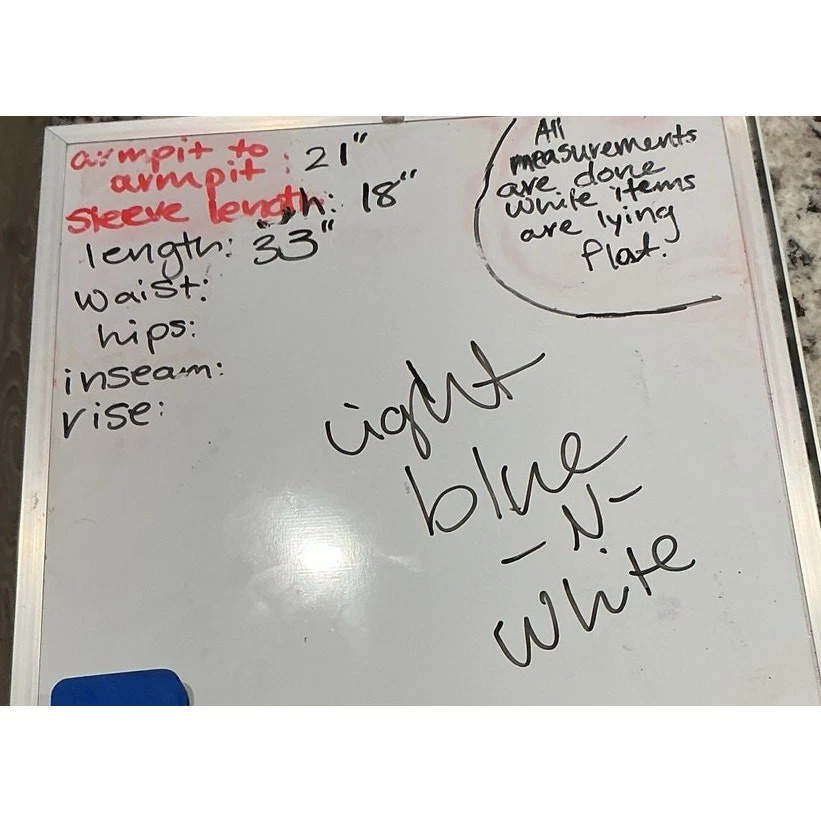 armpit to
armpit : 21"
sleeve length: 18"
length: 33"
waist:
hips:
inseam:
rise:
All
measurements
are done
while items
are lying
flat.
Light
blue
-N-
White